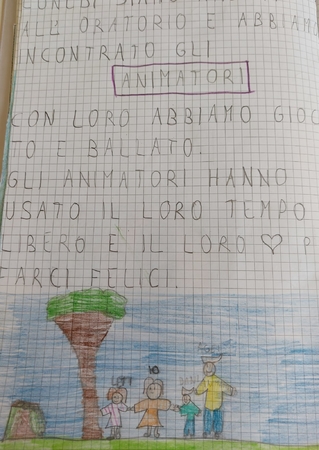 ALL' ORATORIO E ABBIAMO
INCONTRATO GLI
ANIMATORI
CON LORO ABBIAMO GIOC
TO E BALLATO.
GLI ANIMATORI HANNO
USATO IL LORO TEMPO
LIBERO E IL LORO ♡ P
FARCI FELICI.
IO